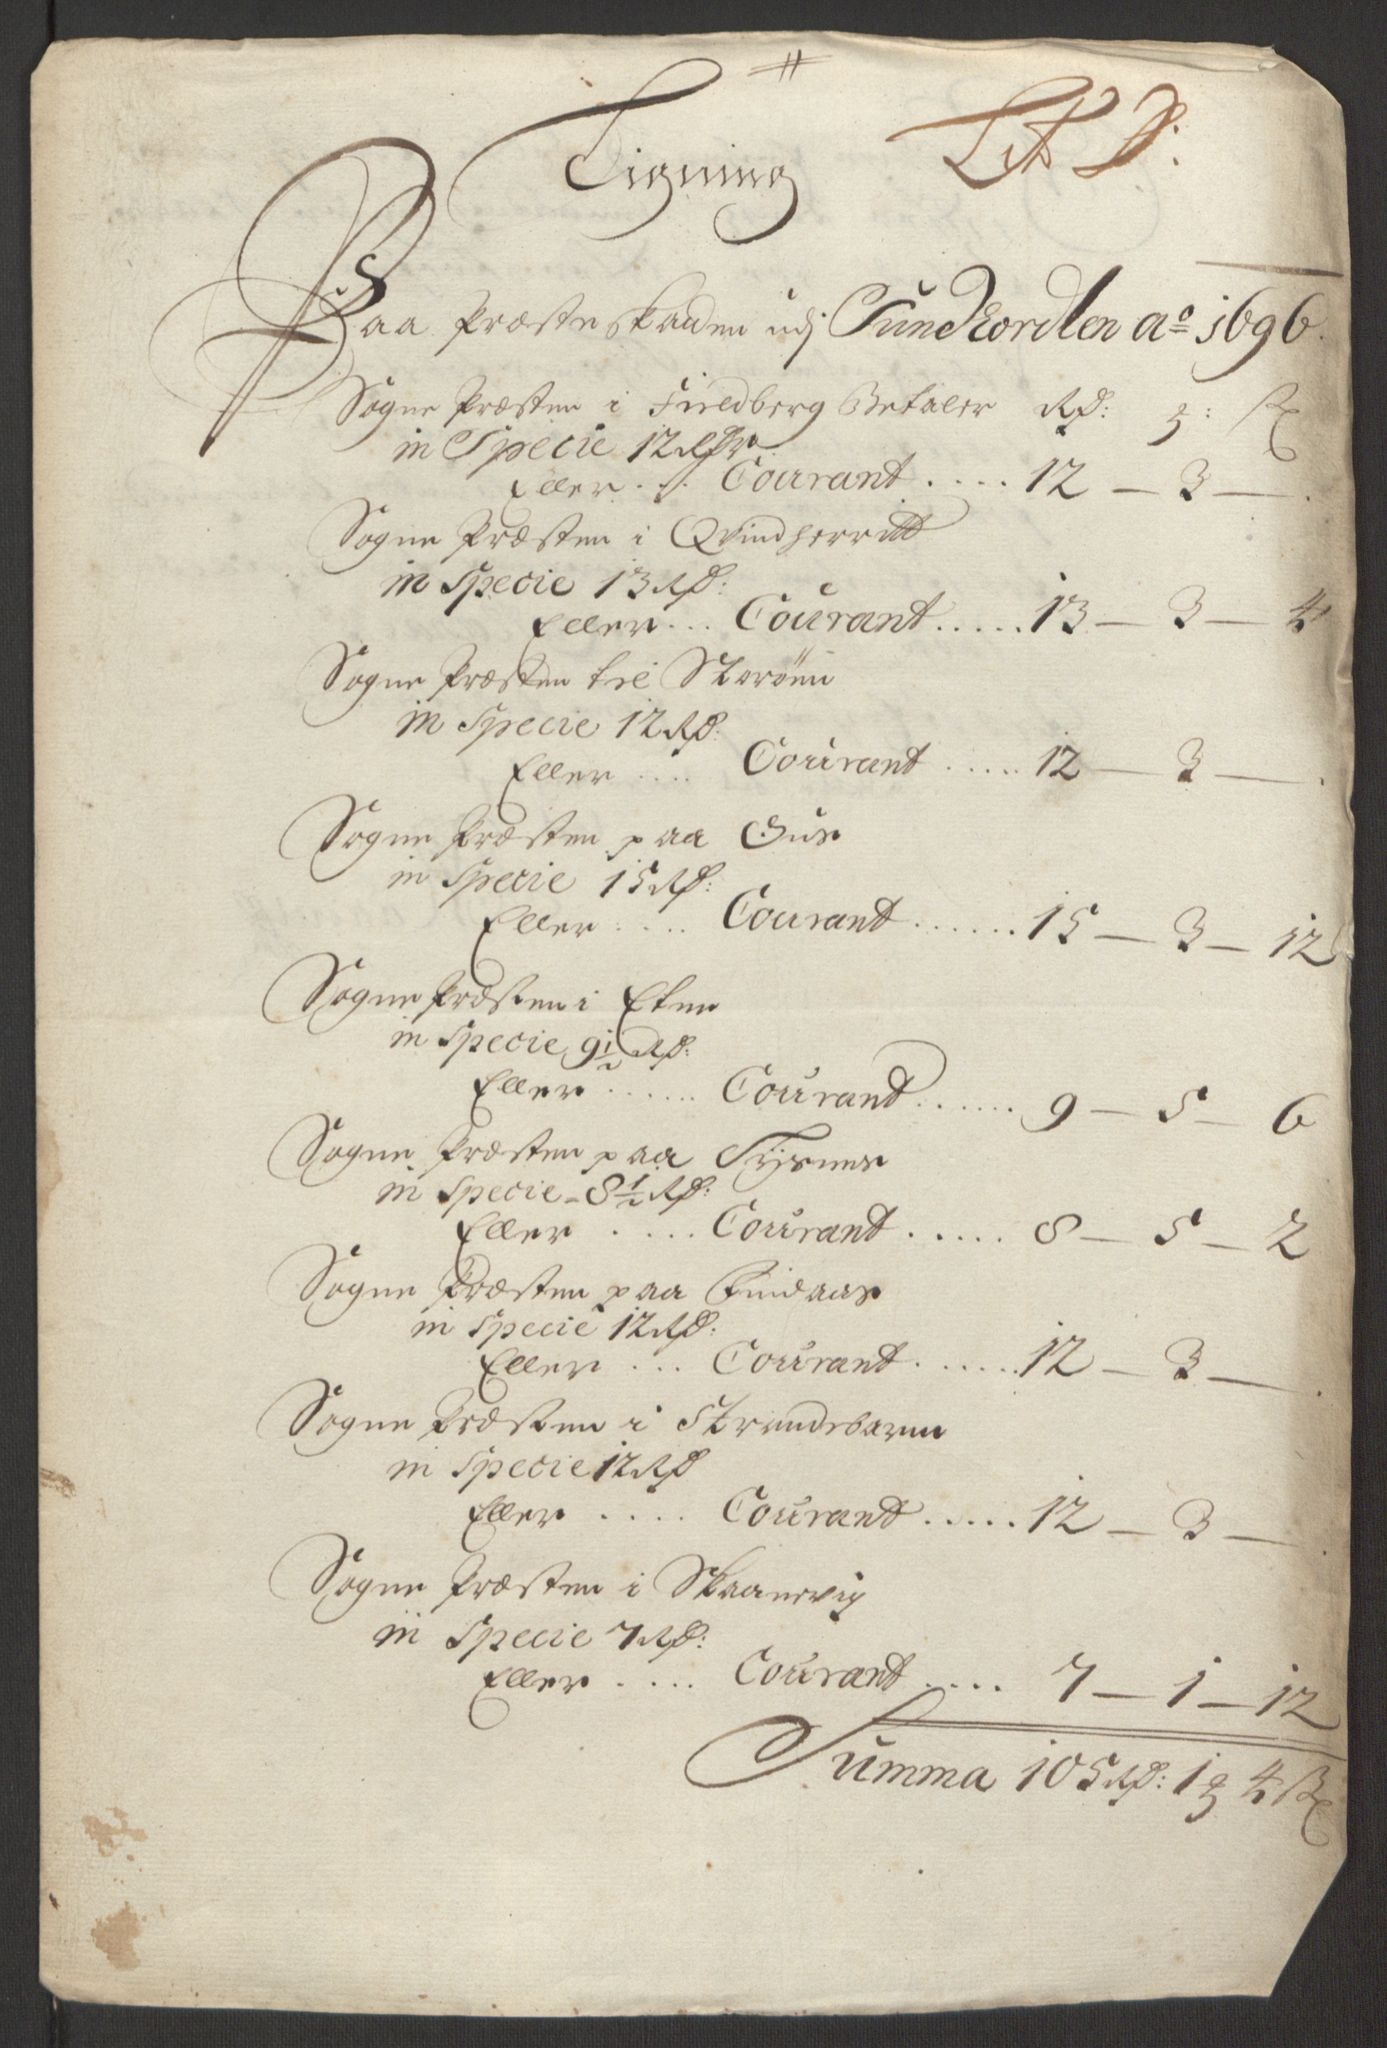 Ligning
Lit D:
Paa Præsteskaden udj Sundhordlen Ao 1696.
Sogne Præsten i Fieldberg Betaler Rd: ȝ: ß
in Specie 12 Rdr
Eller .... Courant .... 12 — 3 — .
Sogne Præsten i Qvindherritt
in Specie 13 Rd:
Eller ... Courant ..... 13 — 3 — 4
Sogne Præsten til Storøen
in Specie 12 Rd:
Eller .... Courant ..... 12 — 3 — .
Sogne Præsten paa Huus
in Specie 15 Rd:
Eller .... Courant ...... 15 — 3 — 12
Sogne Præsten i Etne
in Specie 9 1/2 Rd:
Eller ...... Courant ...... 9 — 5 — 6
Sogne Præsten paa Tysnes
in Specie - 8 1/2 Rd:
Eller ..... Courant ..... 8 — 5 — 2
Sogne Præsten paa Findaas
in Specie 12 Rd:
Eller .... Courant ...... 12 — 3 — .
Sogne Præsten i Strandebarm
in Specie 12 Rd
Eller .... Courant ..... 12 — 3 — .
Sogne Præsten i Skaanevig
in Specie 7 Rd:
Eller .... Courant .... 7 — 1 — 12
Summa 105 Rd: 1 ȝ 4 ß